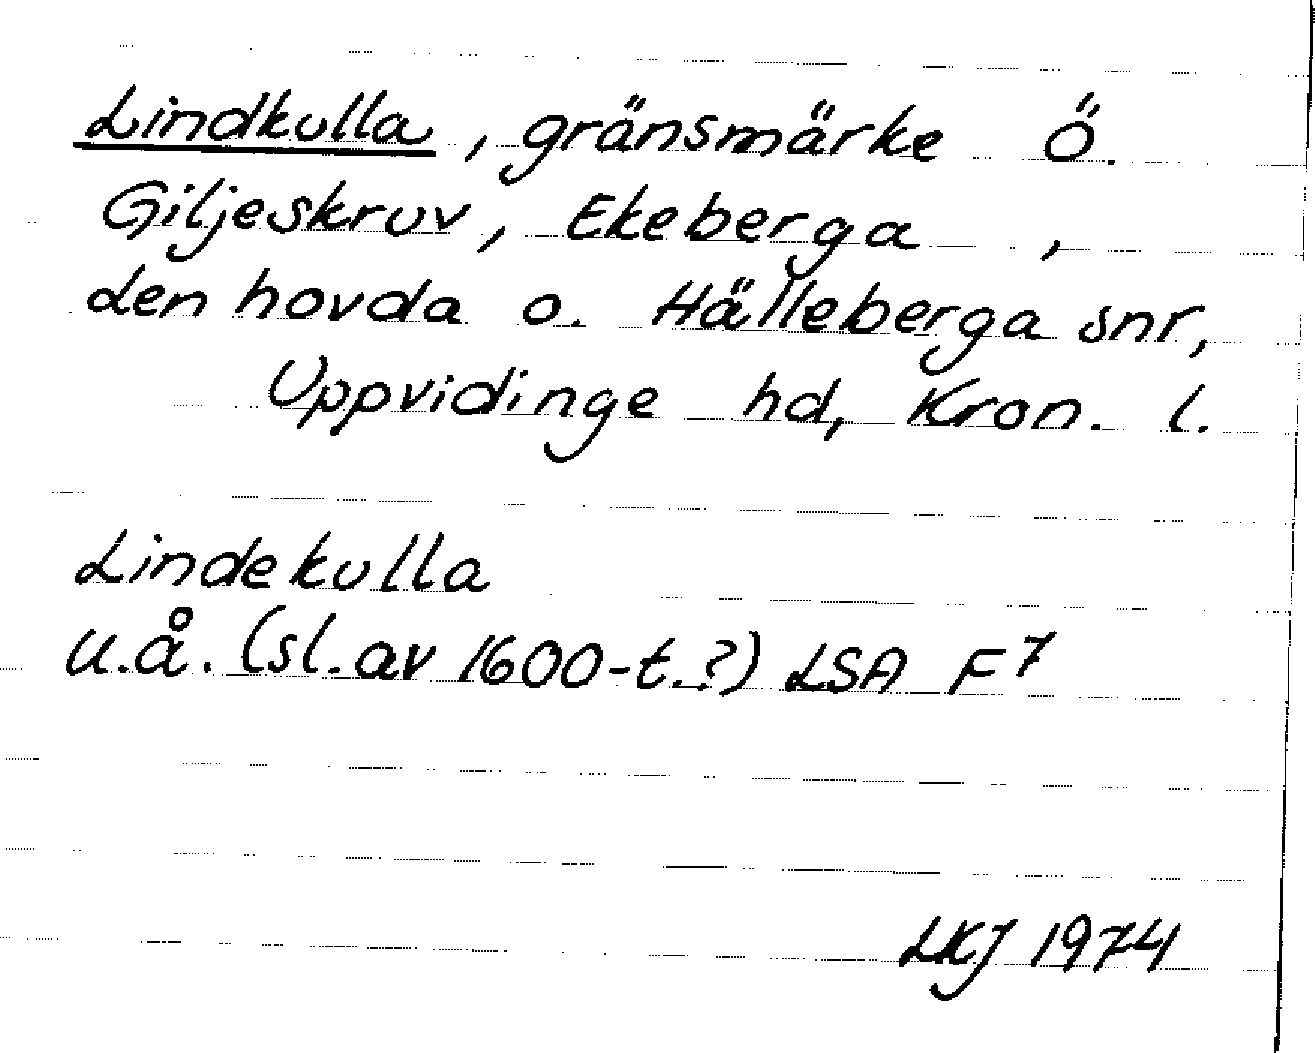 Lindkulla, gränsmärke Ö.
Giljeskruv, Ekeberga,
den hovda o. Hälleberga snr,
Uppvidinge hd, Kron. l.
Lindekulla
u.å. (sl. av 1600-t.?) LSA F7
LKJ 1974